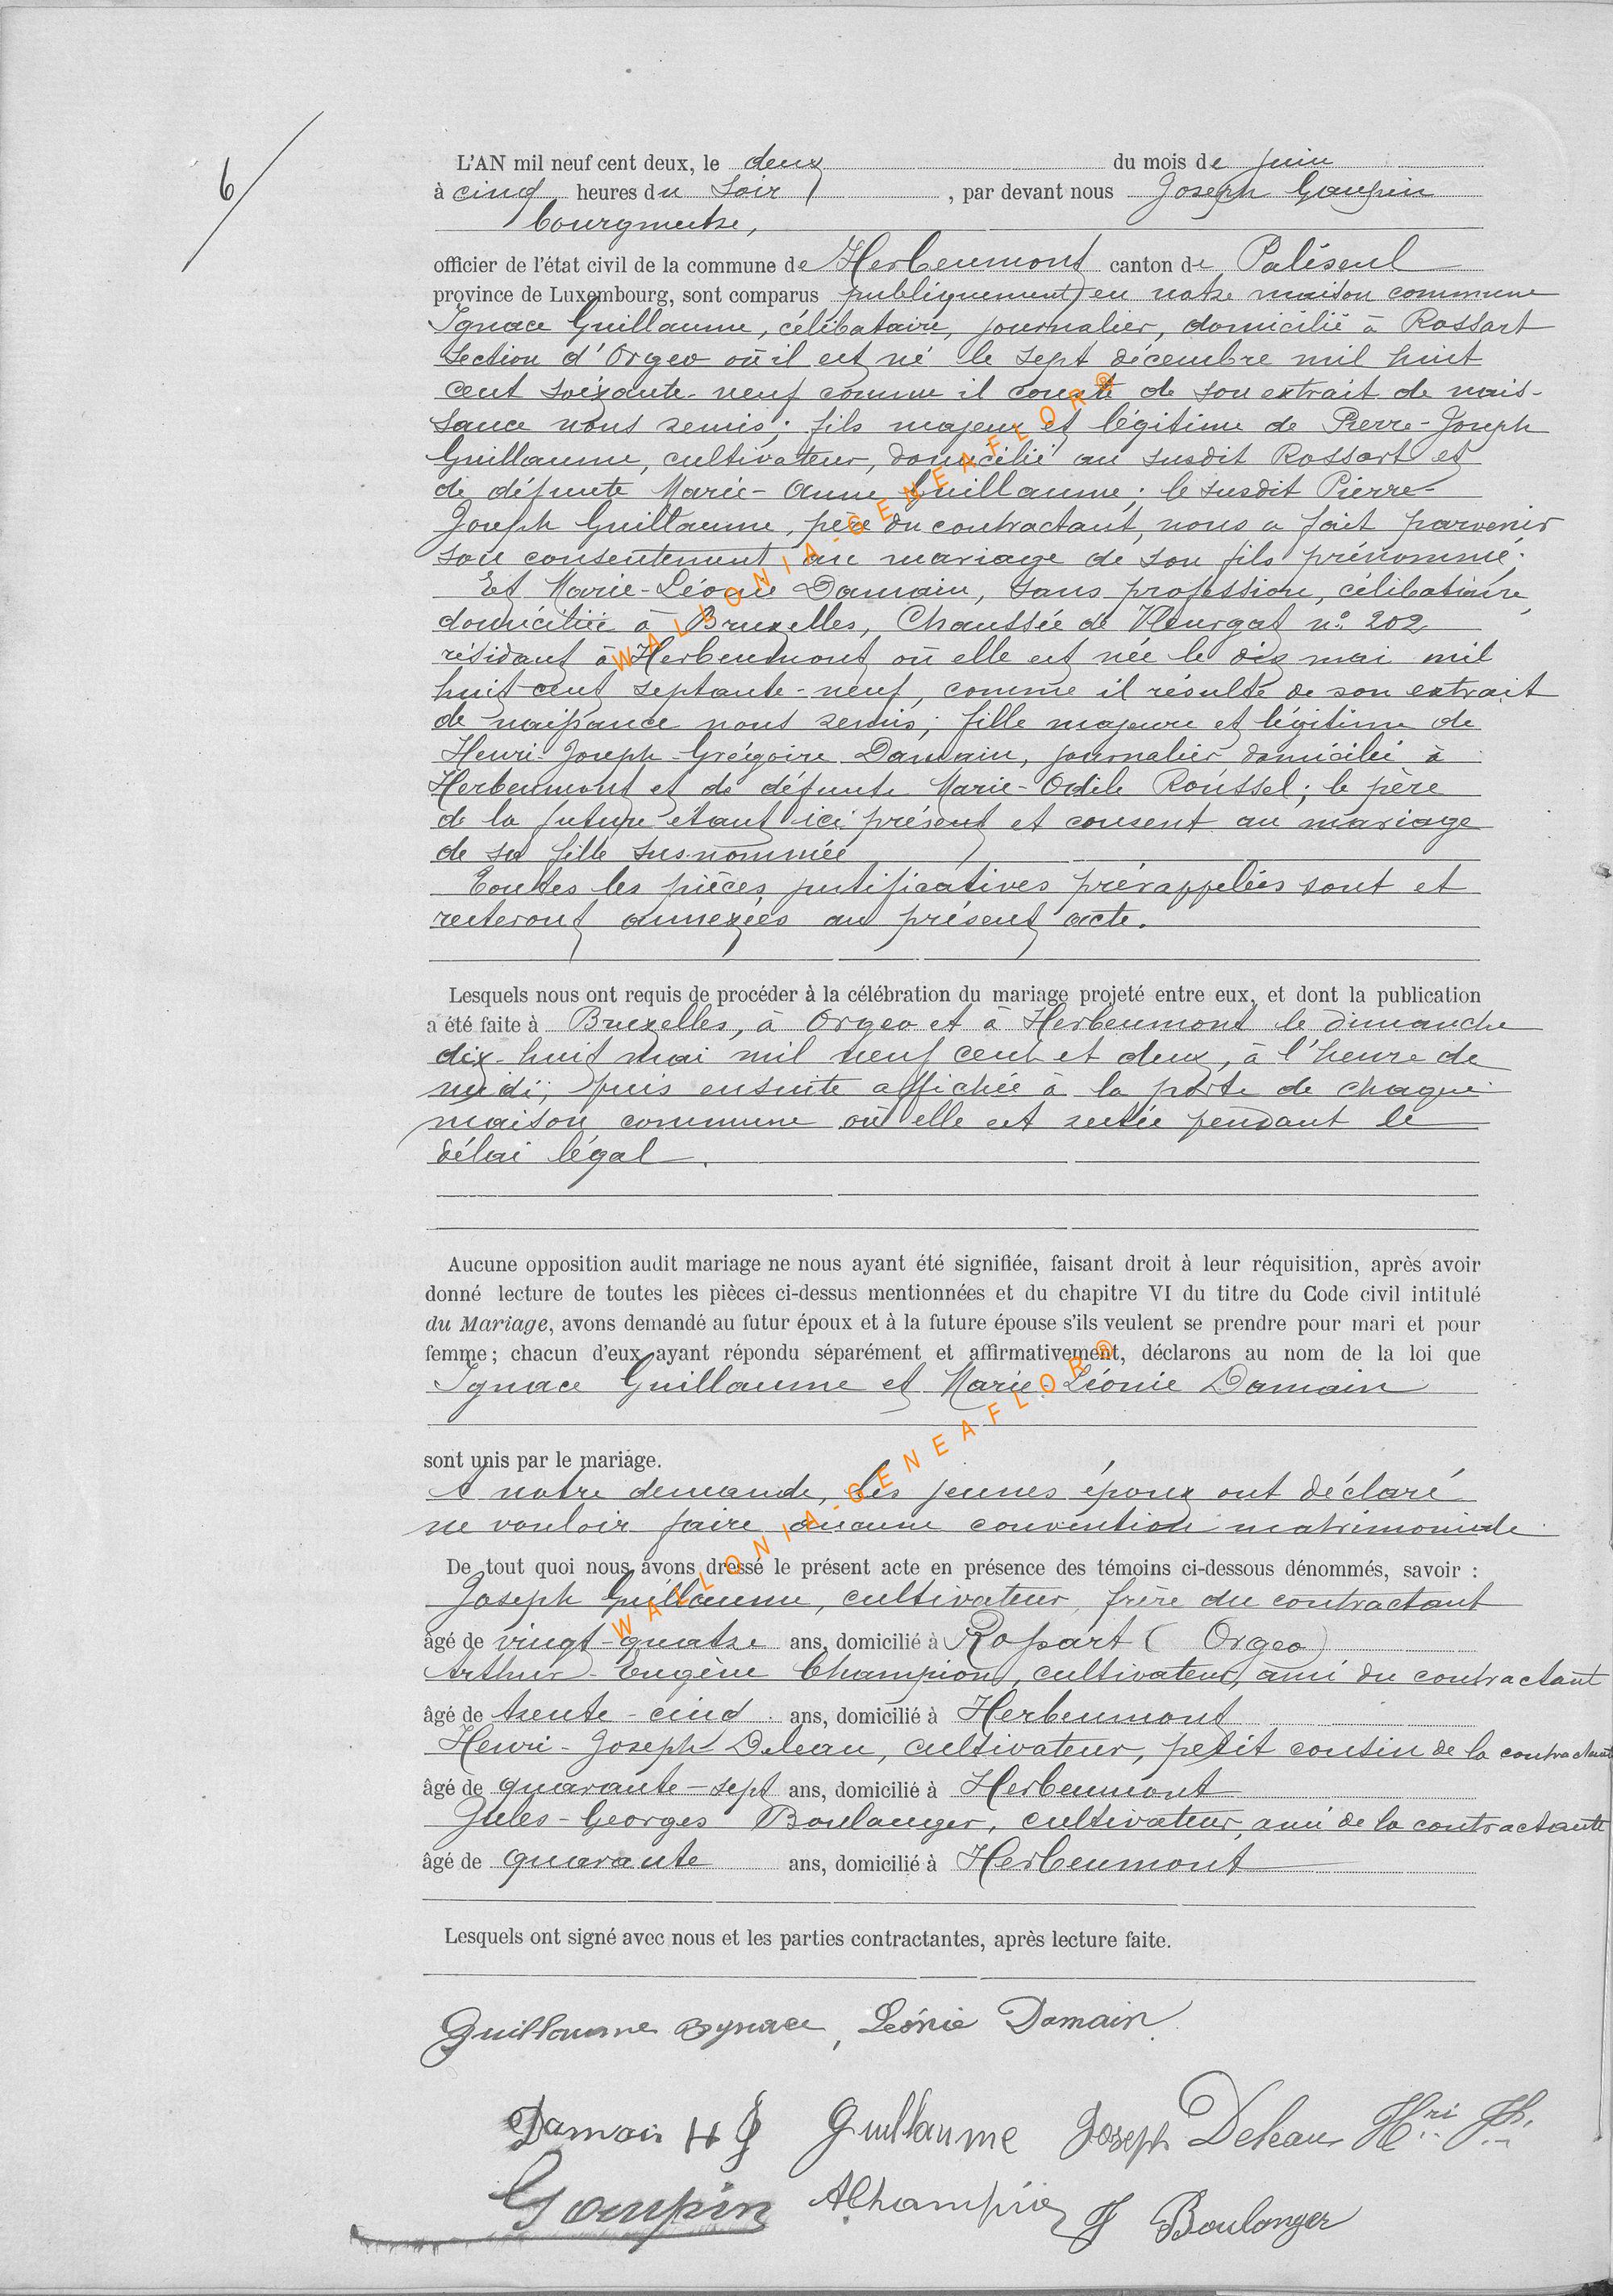 6
L'AN mil neuf cent deux, le deux du mois de juin
à cinq heures du soir, par devant nous Joseph Goupin
bourgmestre,
officier de l'état civil de la commune de Herbeumont canton de Paliseul
province de Luxembourg, sont comparus publiquement en notre maison commune
Ignace Guillaume, célibataire, journalier, domicilié à Rossart
section d'Orgeo où il est né le sept décembre mil huit
cent soixante-neuf comme il conste de son extrait de nais-
sance nous remis; fils majeur et légitime de Pierre-Joseph
Guillaume, cultivateur, domicilié au susdit Rossart et
de défunte Marie-Anne Guillaume; le susdit Pierre-
Joseph Guillaume, père du contractant, nous a fait parvenir
son consentement au mariage de son fils prénommé;
Et Marie-Léonie Damain, sans profession, célibataire,
domiciliée à Bruxelles, Chaussée de Vleurgat n° 202
résidant à Herbeumont où elle est née le dix mai mil
huit cent septante-neuf, comme il résulte de son extrait
de naissance nous remis; fille majeure et légitime de
Henri-Joseph-Grégoire Damain, journalier domicilié à
Herbeumont et de défunte Marie-Odile Roussel; le père
de la future étant ici présent et consent au mariage
de sa fille susnommée
Toutes les pièces justificatives prérappelées sont et
resteront annexées au présent acte.
Lesquels nous ont requis de procéder à la célébration du mariage projeté entre eux, et dont la publication
a été faite à Bruxelles, à Orgeo et à Herbeumont le dimanche
dix-huit mai mil neuf cent et deux, à l'heure de
midi; puis ensuite affichée à la porte de chaque
maison commune où elle est restée pendant le
délai légal.
Aucune opposition audit mariage ne nous ayant été signifiée, faisant droit à leur réquisition, après avoir
donné lecture de toutes les pièces ci-dessus mentionnées et du chapitre VI du titre du Code civil intitulé
du Mariage, avons demandé au futur époux et à la future épouse s'ils veulent se prendre pour mari et pour
femme; chacun d'eux ayant répondu séparément et affirmativement, déclarons au nom de la loi que
Ignace Guillaume et Marie-Léonie Damain
sont unis par le mariage.
A notre demande, les jeunes époux ont déclaré
ne vouloir faire aucune convention matrimoniale.
De tout quoi nous avons dressé le présent acte en présence des témoins ci-dessous dénommés, savoir :
Joseph Guillaume, cultivateur, frère du contractant
âgé de vingt-quatre ans, domicilié à Rossart (Orgeo)
Arthur-Eugène Champion, cultivateur, ami du contractant
âgé de trente-cinq ans, domicilié à Herbeumont
Henri-Joseph Deleau, cultivateur, petit cousin de la contractante
âgé de quarante-sept ans, domicilié à Herbeumont
Jules-Georges Boulanger, cultivateur, ami de la contractante
âgé de quarante ans, domicilié à Herbeumont
Lesquels ont signé avec nous et les parties contractantes, après lecture faite.
Guillaume Ignace, Léonie Damain
Damain H J Guillaume Joseph Deleau Hri Jh.
Goupin AChampion J Boulanger
WALLONIA-GENEAFLOR®
WALLONIA-GENEAFLOR®